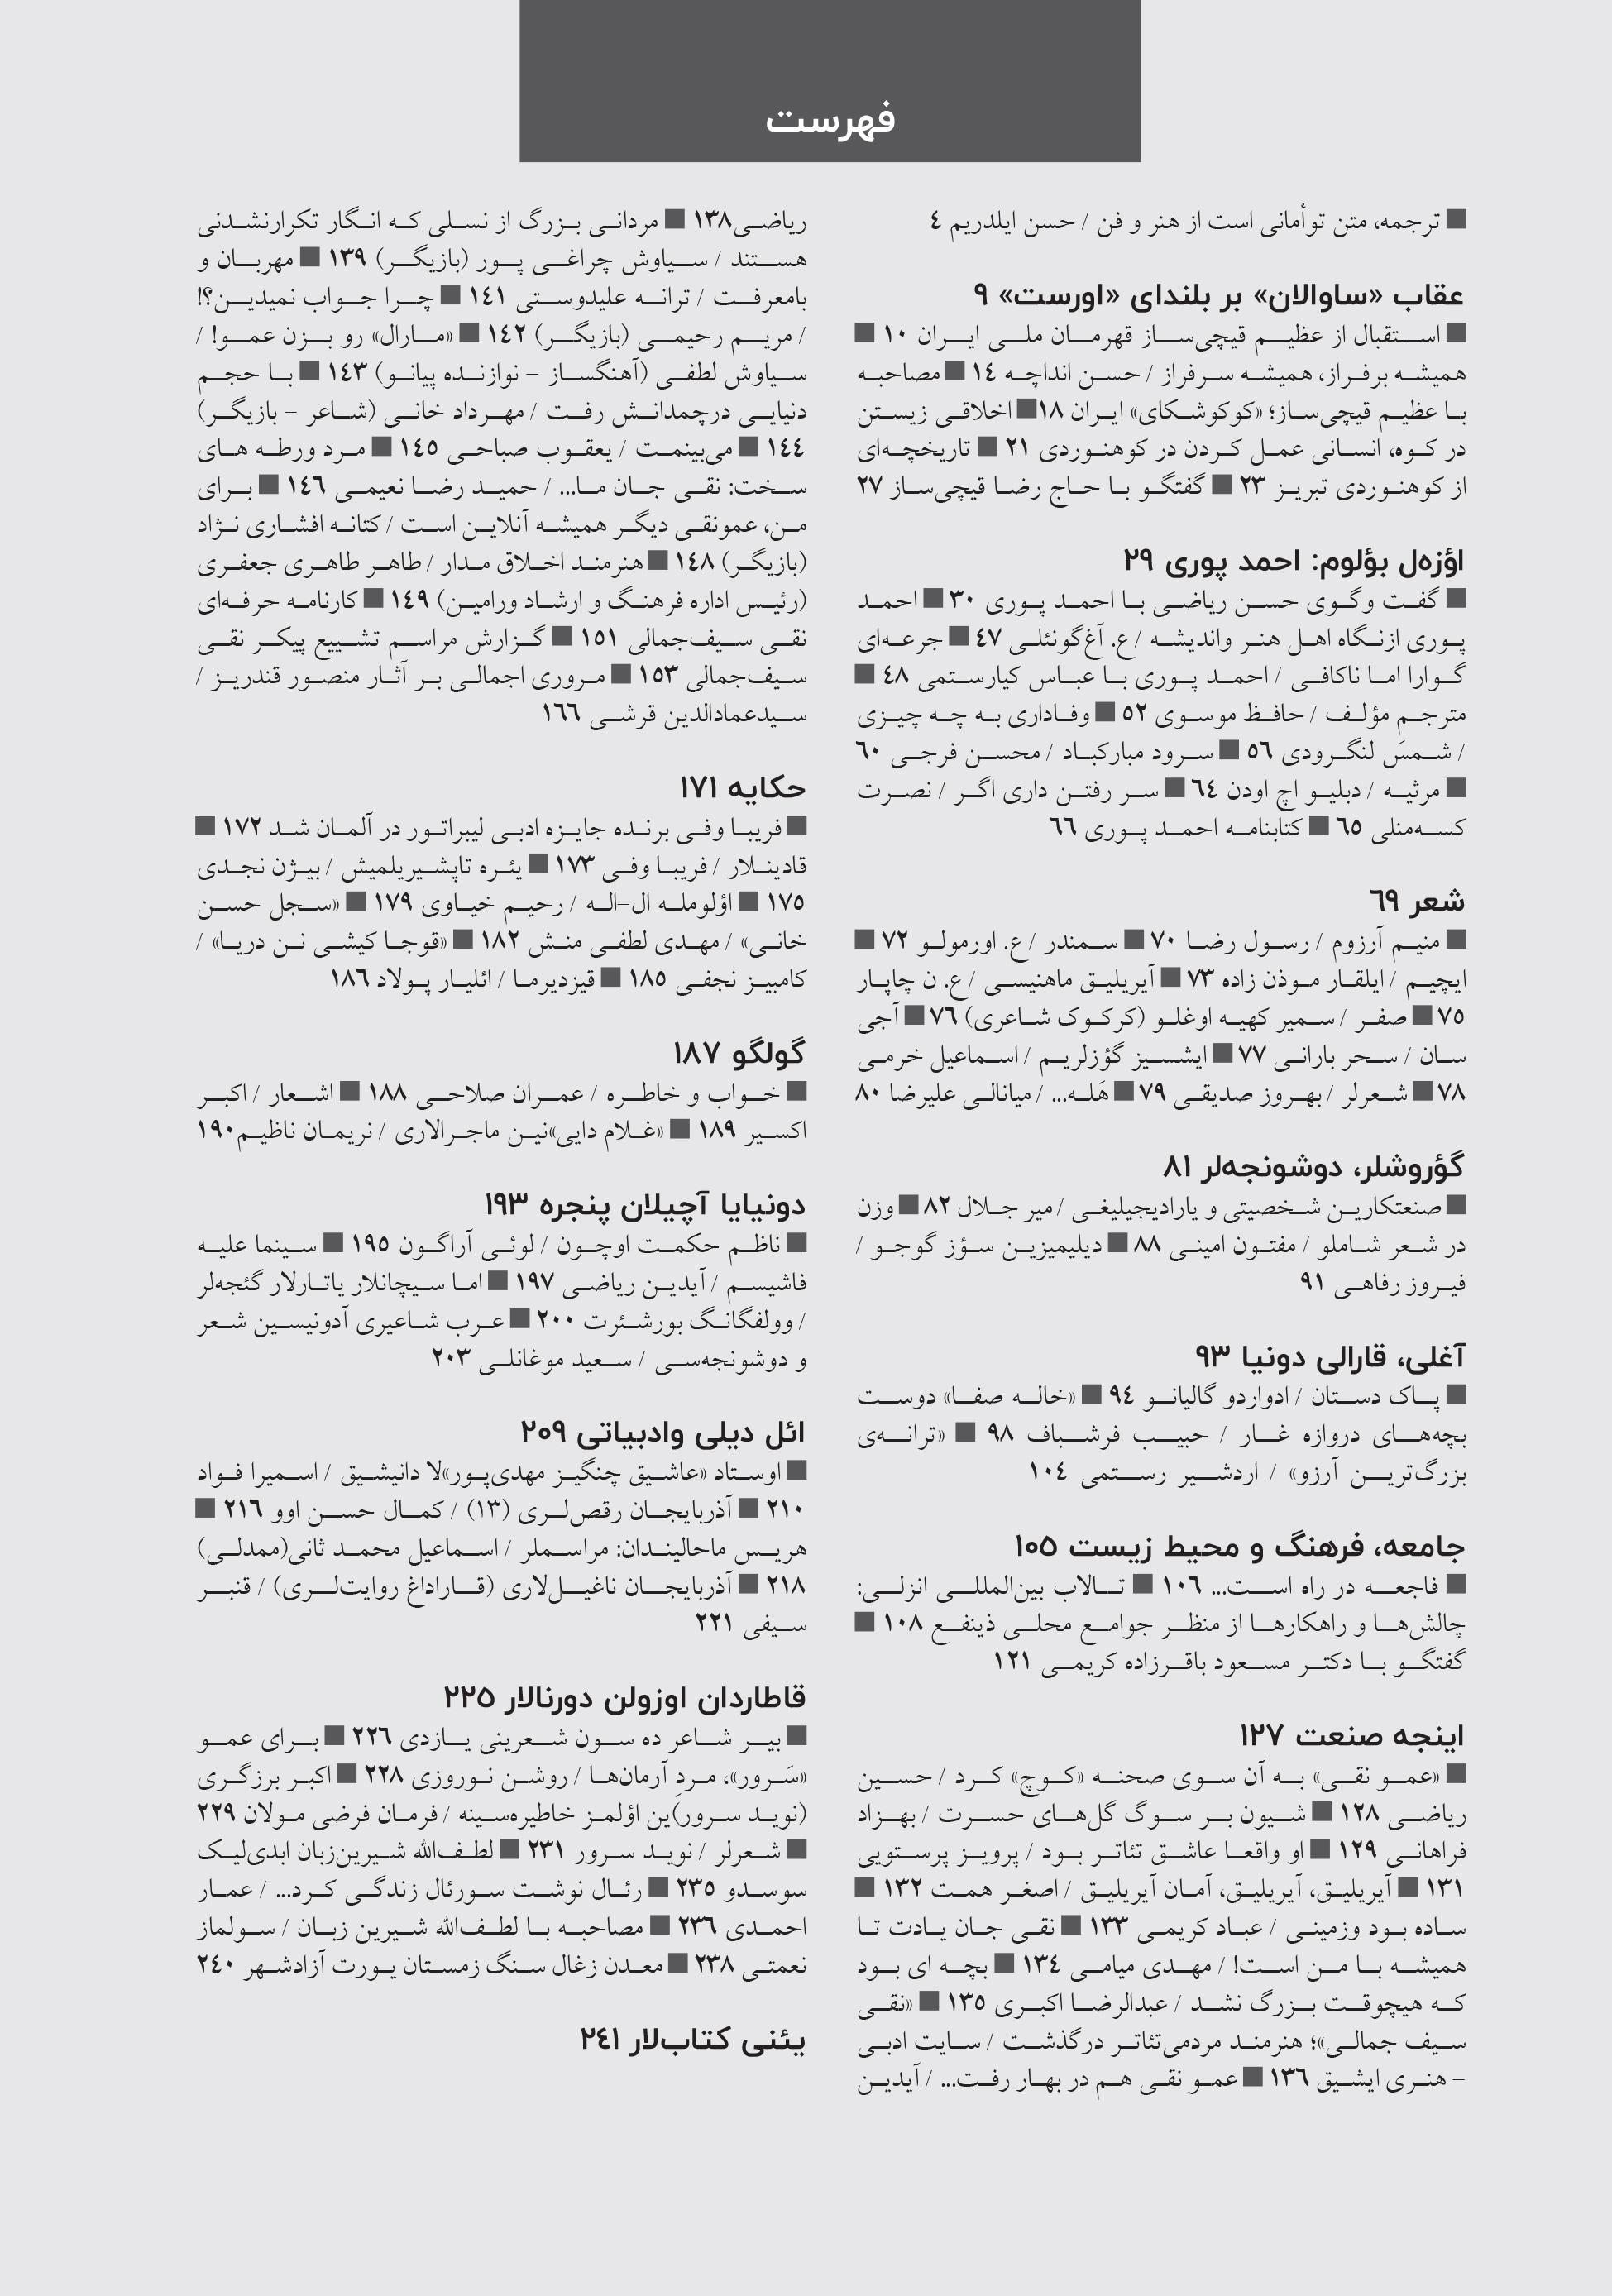 فهرست
■ ترجمه، متن توأمانی است از هنر و فن / حسن ایلدریم ٤
عقاب «ساوالان» بر بلندای «اورست» ۹
■ استقبال از عظیم قیچی‌ساز قهرمان ملی ایران ۱۰ ■
همیشه برفراز، همیشه سرفراز / حسن انداچه ۱٤ ■ مصاحبه
با عظیم قیچی‌ساز؛ «کوکوشکای» ایران ۱۸■ اخلاقی زیستن
در کوه، انسانی عمل کردن در کوهنوردی ۲۱ ■ تاریخچه‌ای
از کوهنوردی تبریز ۲۳ ■ گفتگو با حاج رضا قیچی‌ساز ۲۷
اؤزه‌ل بؤلوم: احمد پوری ۲۹
■ گفت وگوی حسن ریاضی با احمد پوری ۳۰ ■ احمد
پوری ازنگاه اهل هنر واندیشه /ع. آغ‌گونئلی ٤۷ ■ جرعه‌ای
گوارا اما ناکافی / احمد پوری با عباس کیارستمی ٤۸ ■
مترجم مؤلف / حافظ موسوی ٥۲ ■ وفاداری به چه چیزی
/ شمسَ لنگرودی ٥٦ ■ سرود مبارکباد / محسن فرجی ٦۰
■ مرثیه / دبلیو اچ اودن ٦٤ ■ سر رفتن داری اگر / نصرت
کسه‌منلی ٦٥ ■ کتابنامه احمد پوری ٦٦
شعر ٦۹
■ منیم آرزوم / رسول رضا ۷۰ ■ سمندر /ع. اورمولو ۷۲ ■
ایچیم / ایلقار موذن زاده ۷۳ ■ آیریلیق ماهنیسی /ع. ن چاپار
۷٥ ■ صفر / سمیر کهیه اوغلو (کرکوک شاعری) ۷٦ ■ آجی
سان / سحر بارانی ۷۷ ■ ایشسیز گؤزلریم / اسماعیل خرمی
۷۸ ■ شعرلر / بهروز صدیقی ۷۹ ■ هَله... / میانالی علیرضا ۸۰
گؤروشلر، دوشونجه‌لر ۸۱
■ صنعتکارین شخصیتی و یارادیجیلیغی / میر جلال ۸۲ ■ وزن
در شعر شاملو / مفتون امینی ۸۸ ■ دیلیمیزین سؤز گوجو /
فیروز رفاهی ۹۱
آغلی، قارالی دونیا ۹۳
■ پاک دستان / ادواردو گالیانو ۹٤ ■ «خاله صفا» دوست
بچه‌های دروازه غار / حبیب فرشباف ۹۸ ■ «ترانه‌ی
بزرگ‌ترین آرزو» / اردشیر رستمی ۱۰٤
جامعه، فرهنگ و محیط زیست ۱۰٥
■ فاجعه در راه است... ۱۰٦ ■ تالاب بین‌المللی انزلی:
چالش‌ها و راهکارها از منظر جوامع محلی ذینفع ۱۰۸ ■
گفتگو با دکتر مسعود باقرزاده کریمی ۱۲۱
اینجه صنعت ۱۲۷
■ «عمو نقی» به آن سوی صحنه «کوچ» کرد / حسین
ریاضی ۱۲۸ ■ شیون بر سوگ گل‌های حسرت / بهزاد
فراهانی ۱۲۹ ■ او واقعا عاشق تئاتر بود / پرویز پرستویی
۱۳۱ ■ آیریلیق، آیریلیق، آمان آیریلیق / اصغر همت ۱۳۲ ■
ساده بود وزمینی / عباد کریمی ۱۳۳ ■ نقی جان یادت تا
همیشه با من است! / مهدی میامی ۱۳٤ ■ بچه ای بود
که هیچوقت بزرگ نشد / عبدالرضا اکبری ۱۳٥ ■ «نقی
سیف جمالی»؛ هنرمند مردمی‌تئاتر درگذشت / سایت ادبی
– هنری ایشیق ۱۳٦ ■ عمو نقی هم در بهار رفت... / آیدین
ریاضی۱۳۸ ■ مردانی بزرگ از نسلی که انگار تکرارنشدنی
هستند / سیاوش چراغی پور (بازیگر) ۱۳۹ ■ مهربان و
بامعرفت / ترانه علیدوستی ۱٤۱ ■ چرا جواب نمیدین؟!
/ مریم رحیمی (بازیگر) ۱٤۲ ■ «مارال» رو بزن عمو! /
سیاوش لطفی (آهنگساز – نوازنده پیانو) ۱٤۳ ■ با حجم
دنیایی درچمدانش رفت / مهرداد خانی (شاعر – بازیگر)
۱٤٤ ■ می‌بینمت / یعقوب صباحی ۱٤٥ ■ مرد ورطه های
سخت: نقی جان ما... / حمید رضا نعیمی ۱٤٦ ■ برای
من، عمونقی دیگر همیشه آنلاین است / کتانه افشاری نژاد
(بازیگر) ۱٤۸ ■ هنرمند اخلاق مدار / طاهر طاهری جعفری
(رئیس اداره فرهنگ و ارشاد ورامین) ۱٤۹ ■ کارنامه حرفه‌ای
نقی سیف‌جمالی ۱٥۱ ■ گزارش مراسم تشییع پیکر نقی
سیف‌جمالی ۱٥۳ ■ مروری اجمالی بر آثار منصور قندریز /
سیدعمادالدین قرشی ۱٦٦
حکایه ۱۷۱
■ فریبا وفی برنده جایزه ادبی لیبراتور در آلمان شد ۱۷۲ ■
قادینلار / فریبا وفی ۱۷۳ ■ یئره تاپشیریلمیش / بیژن نجدی
۱۷٥ ■ اؤلومله ال-اله / رحیم خیاوی ۱۷۹ ■ «سجل حسن
خانی» / مهدی لطفی منش ۱۸۲ ■ «قوجا کیشی نن دریا» /
کامبیز نجفی ۱۸٥ ■ قیزدیرما / ائلیار پولاد ۱۸٦
گولگو ۱۸۷
■ خواب و خاطره / عمران صلاحی ۱۸۸ ■ اشعار / اکبر
اکسیر ۱۸۹ ■ «غلام دایی»نین ماجرالاری / نریمان ناظیم۱۹۰
دونیایا آچیلان پنجره ۱۹۳
■ ناظم حکمت اوچون / لوئی آراگون ۱۹٥ ■ سینما علیه
فاشیسم / آیدین ریاضی ۱۹۷ ■ اما سیچانلار یاتارلار گئجه‌لر
/ وولفگانگ بورشئرت ۲۰۰ ■ عرب شاعیری آدونیسین شعر
و دوشونجه‌سی / سعید موغانلی ۲۰۳
ائل دیلی وادبیاتی ۲۰۹
■ اوستاد «عاشیق چنگیز مهدی‌پور»لا دانیشیق / اسمیرا فواد
۲۱۰ ■ آذربایجان رقص‌لری (۱۳) / کمال حسن اوو ۲۱٦ ■
هریس ماحالیندان: مراسملر / اسماعیل محمد ثانی(ممدلی)
۲۱۸ ■ آذربایجان ناغیل‌لاری (قاراداغ روایت‌لری) / قنبر
سیفی ۲۲۱
قاطاردان اوزولن دورنالار ۲۲٥
■ بیر شاعر ده سون شعرینی یازدی ۲۲٦ ■ برای عمو
«سَرور»، مردِ آرمان‌ها / روشن نوروزی ۲۲۸ ■ اکبر برزگری
(نوید سرور)ین اؤلمز خاطیره‌سینه / فرمان فرضی مولان ۲۲۹
■ شعرلر / نوید سرور ۲۳۱ ■ لطف‌الله شیرین‌زبان ابدی‌لیک
سوسدو ۲۳٥ ■ رئال نوشت سورئال زندگی کرد... / عمار
احمدی ۲۳٦ ■ مصاحبه با لطف‌الله شیرین زبان / سولماز
نعمتی ۲۳۸ ■ معدن زغال سنگ زمستان یورت آزادشهر ۲٤۰
یئنی کتاب‌لار ۲٤۱